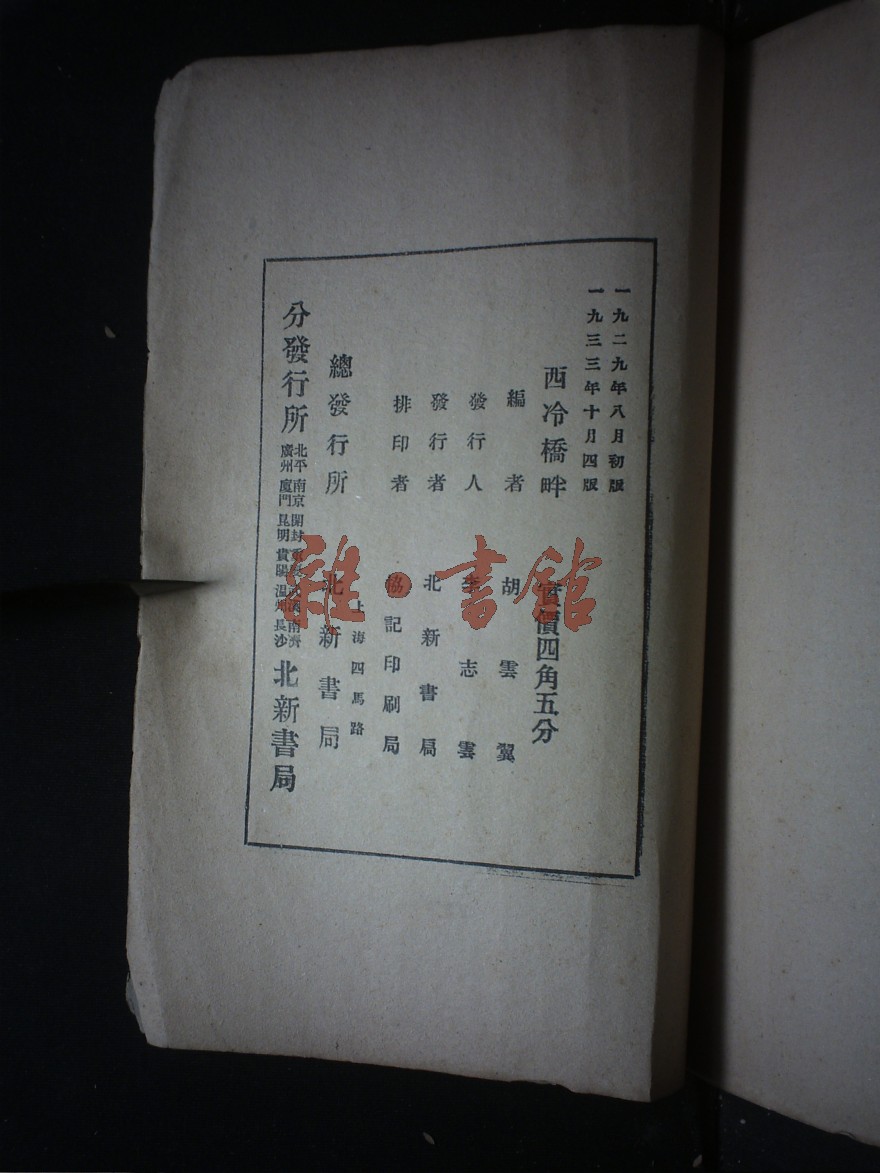 一九二九年八月初版
一九三三年十月四版
西冷橋畔
實價四角五分
編者 胡雲翼
發行人 李志雲
發行者 北新書局
排印者 協記印刷局
總發行所 上海四馬路 北新書局
分發行所
北平 南京 開封 重慶 武漢 濟南
廣州 廈門 昆明 貴陽 溫州 長沙
北新書局
雜·書館